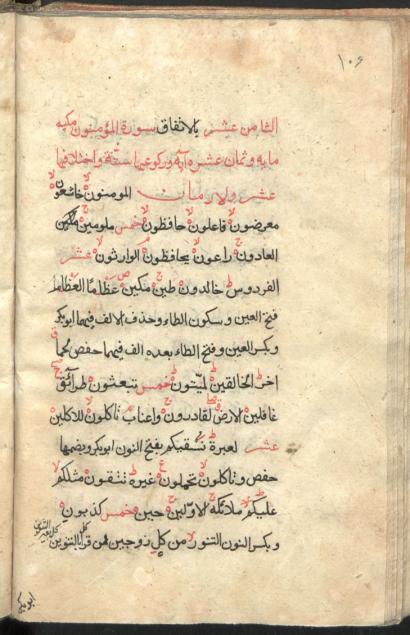 ١٠٦
الثامن عشر بالاتفاق سورة المؤمنون مكيه
مايه وثمان عشره آيه وركوعها ستة واختلافها
عشر ولا رمان المومنون خاشعون
معرضون فاعلون حافظون خمس ملومين
العادون راعون يحافظون الوارثون عشر
الفردوس خالدون طين مكين عظاما العظام
فتح العين وسكون الطاء وحذف الالف فيهما ابوبكر
وبكسر العين وفتح الطاء بعده الف فيهما حفص لحما
اخر الخالقين لميتون خمس تبعثون طرائق
غافلين الارض لقادرون واعناب تاكلون للاكلين
عشر لعبرة نسقيكم بفتح النون ابوبكر وبضمها
حفص وتاكلون تحملون غيره تتقون مثلكم
عليكم ملائكة الاولين حين خمس كذبون
وبكسر النون التنور من كل زوجين فمن قرا بالتنوين